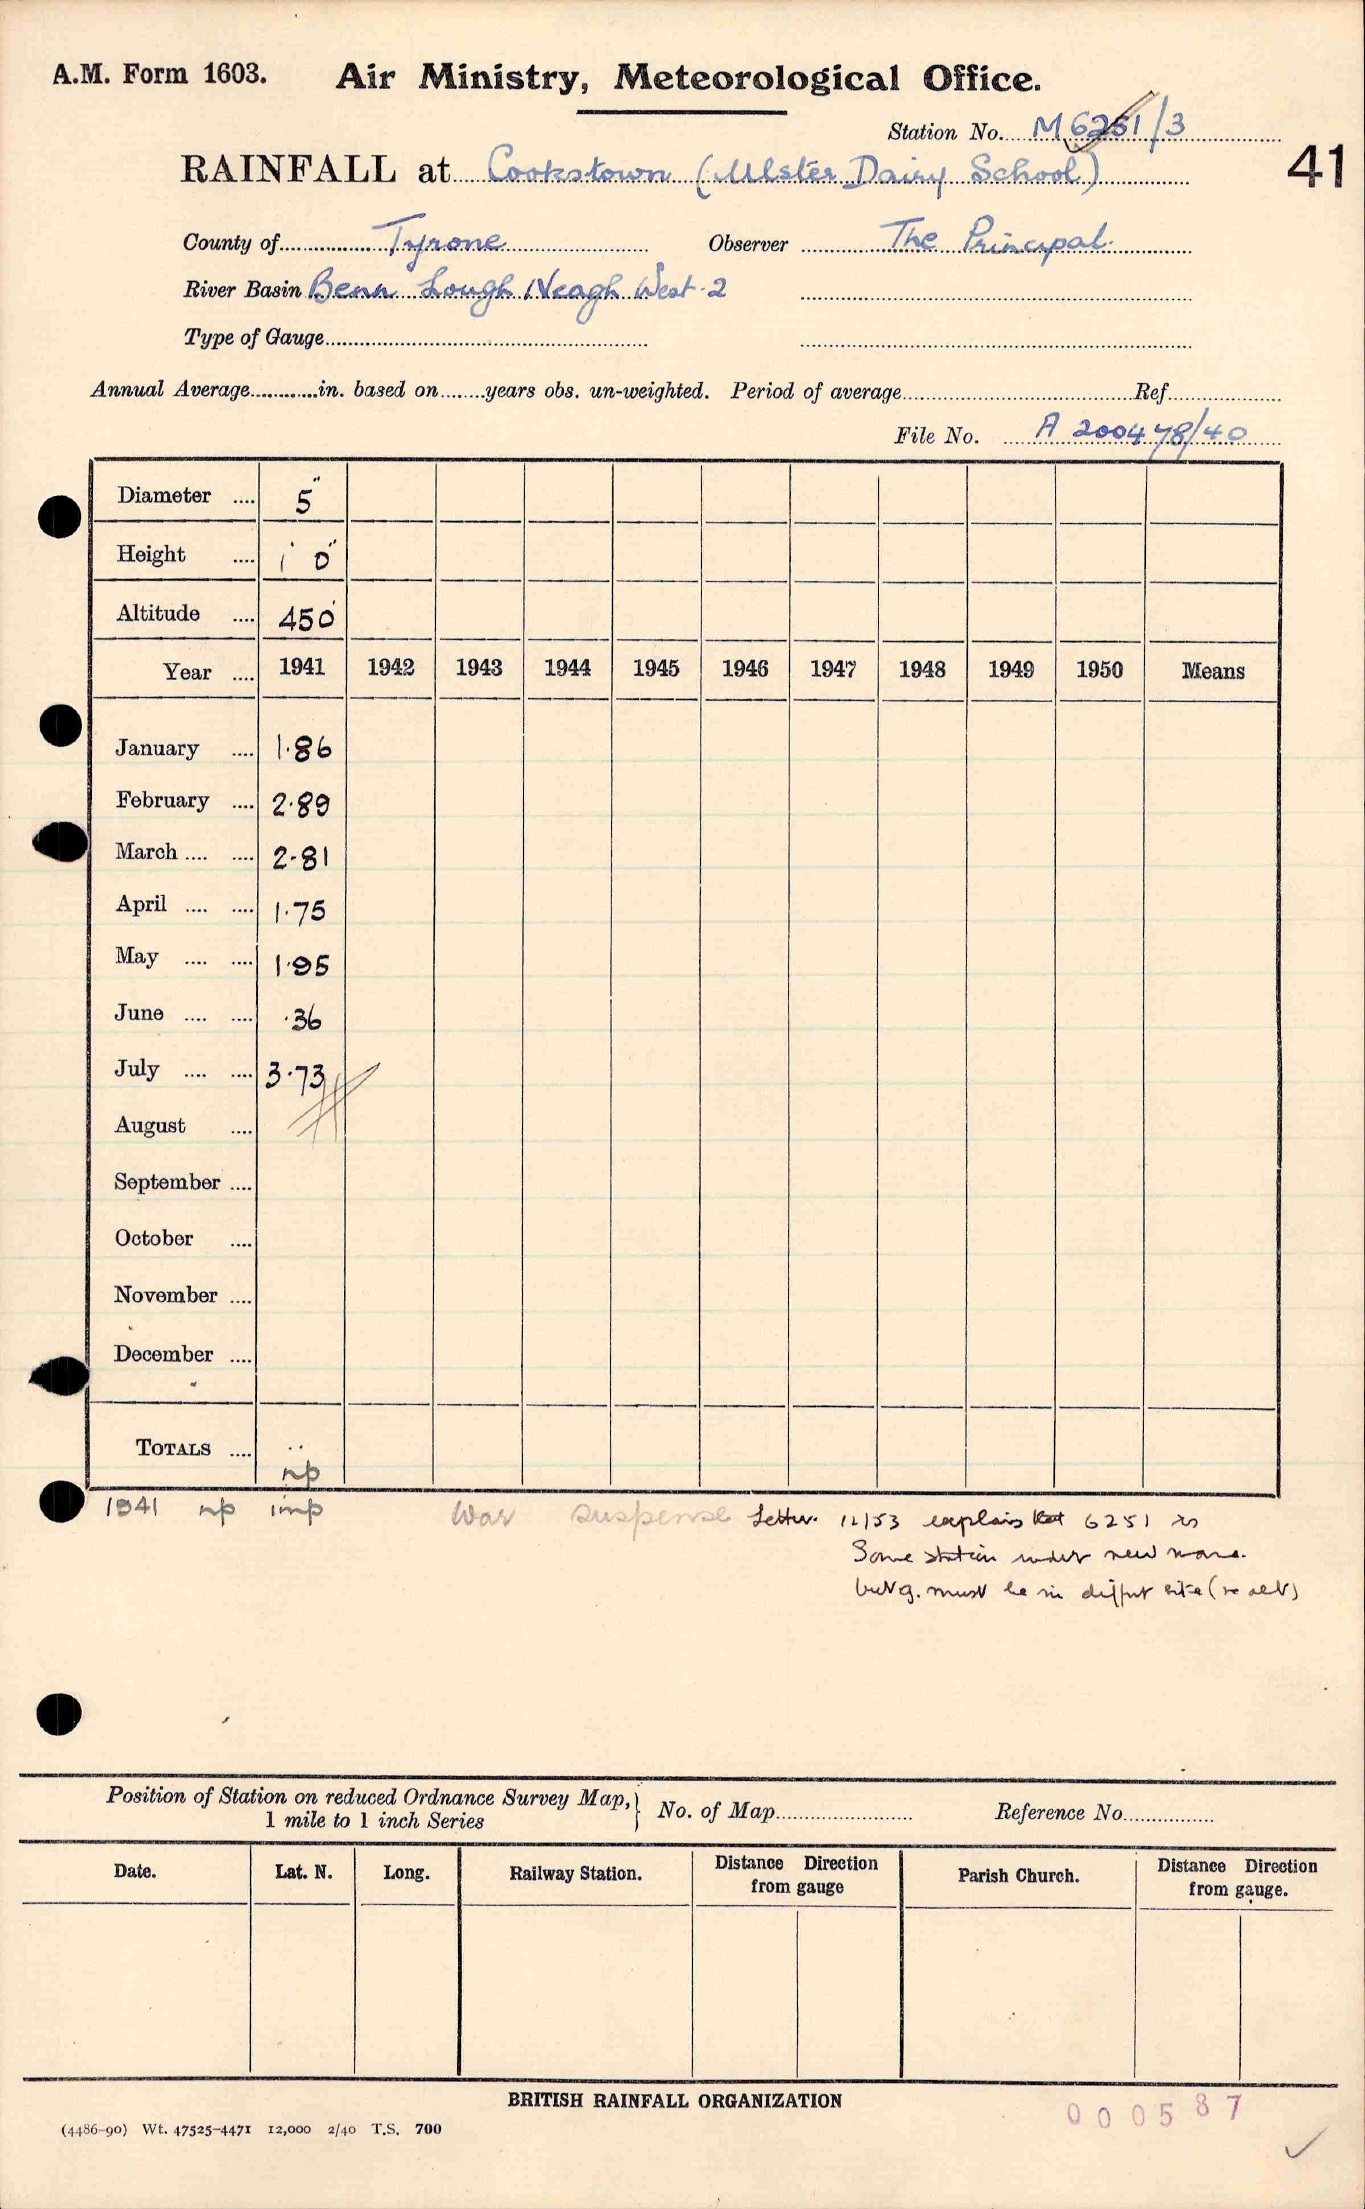 A.M. Form 1603. Air Ministry, Meteorological Office.
Station No. M 6251/3
41
RAINFALL at Cookstown (Ulster Dairy School)
County of Tyrone Observer The Principal.
River Basin Benn Lough Neagh West 2
Type of Gauge
Annual Average............in. based on........years obs. un-weighted. Period of average Ref
File No. A 200478/40
Diameter .... 5"
Height .... 1' 0"
Altitude .... 450'
Year .... 1941 1942 1943 1944 1945 1946 1947 1948 1949 1950 Means
January .... 1.86
February .... 2.89
March .... .... 2.81
April .... .... 1.75
May .... .... 1.95
June .... .... .36
July .... .... 3.73
August ....
September ....
October ....
November ....
December ....
TOTALS .... ..
np
1941 np imp War suspense Letter 12/53 explains that 6251 is
Same station under new name.
but g. must be in site (
Position of Station on reduced Ordnance Survey Map,} No. of Map Reference No.
1 mile to 1 inch Series
Date. Lat. N. Long. Railway Station. Distance Direction from gauge Parish Church. Distance Direction from gauge.
BRITISH RAINFALL ORGANIZATION
000587
(4486-90) Wt. 47525-4471 12,000 2/40 T.S. 700